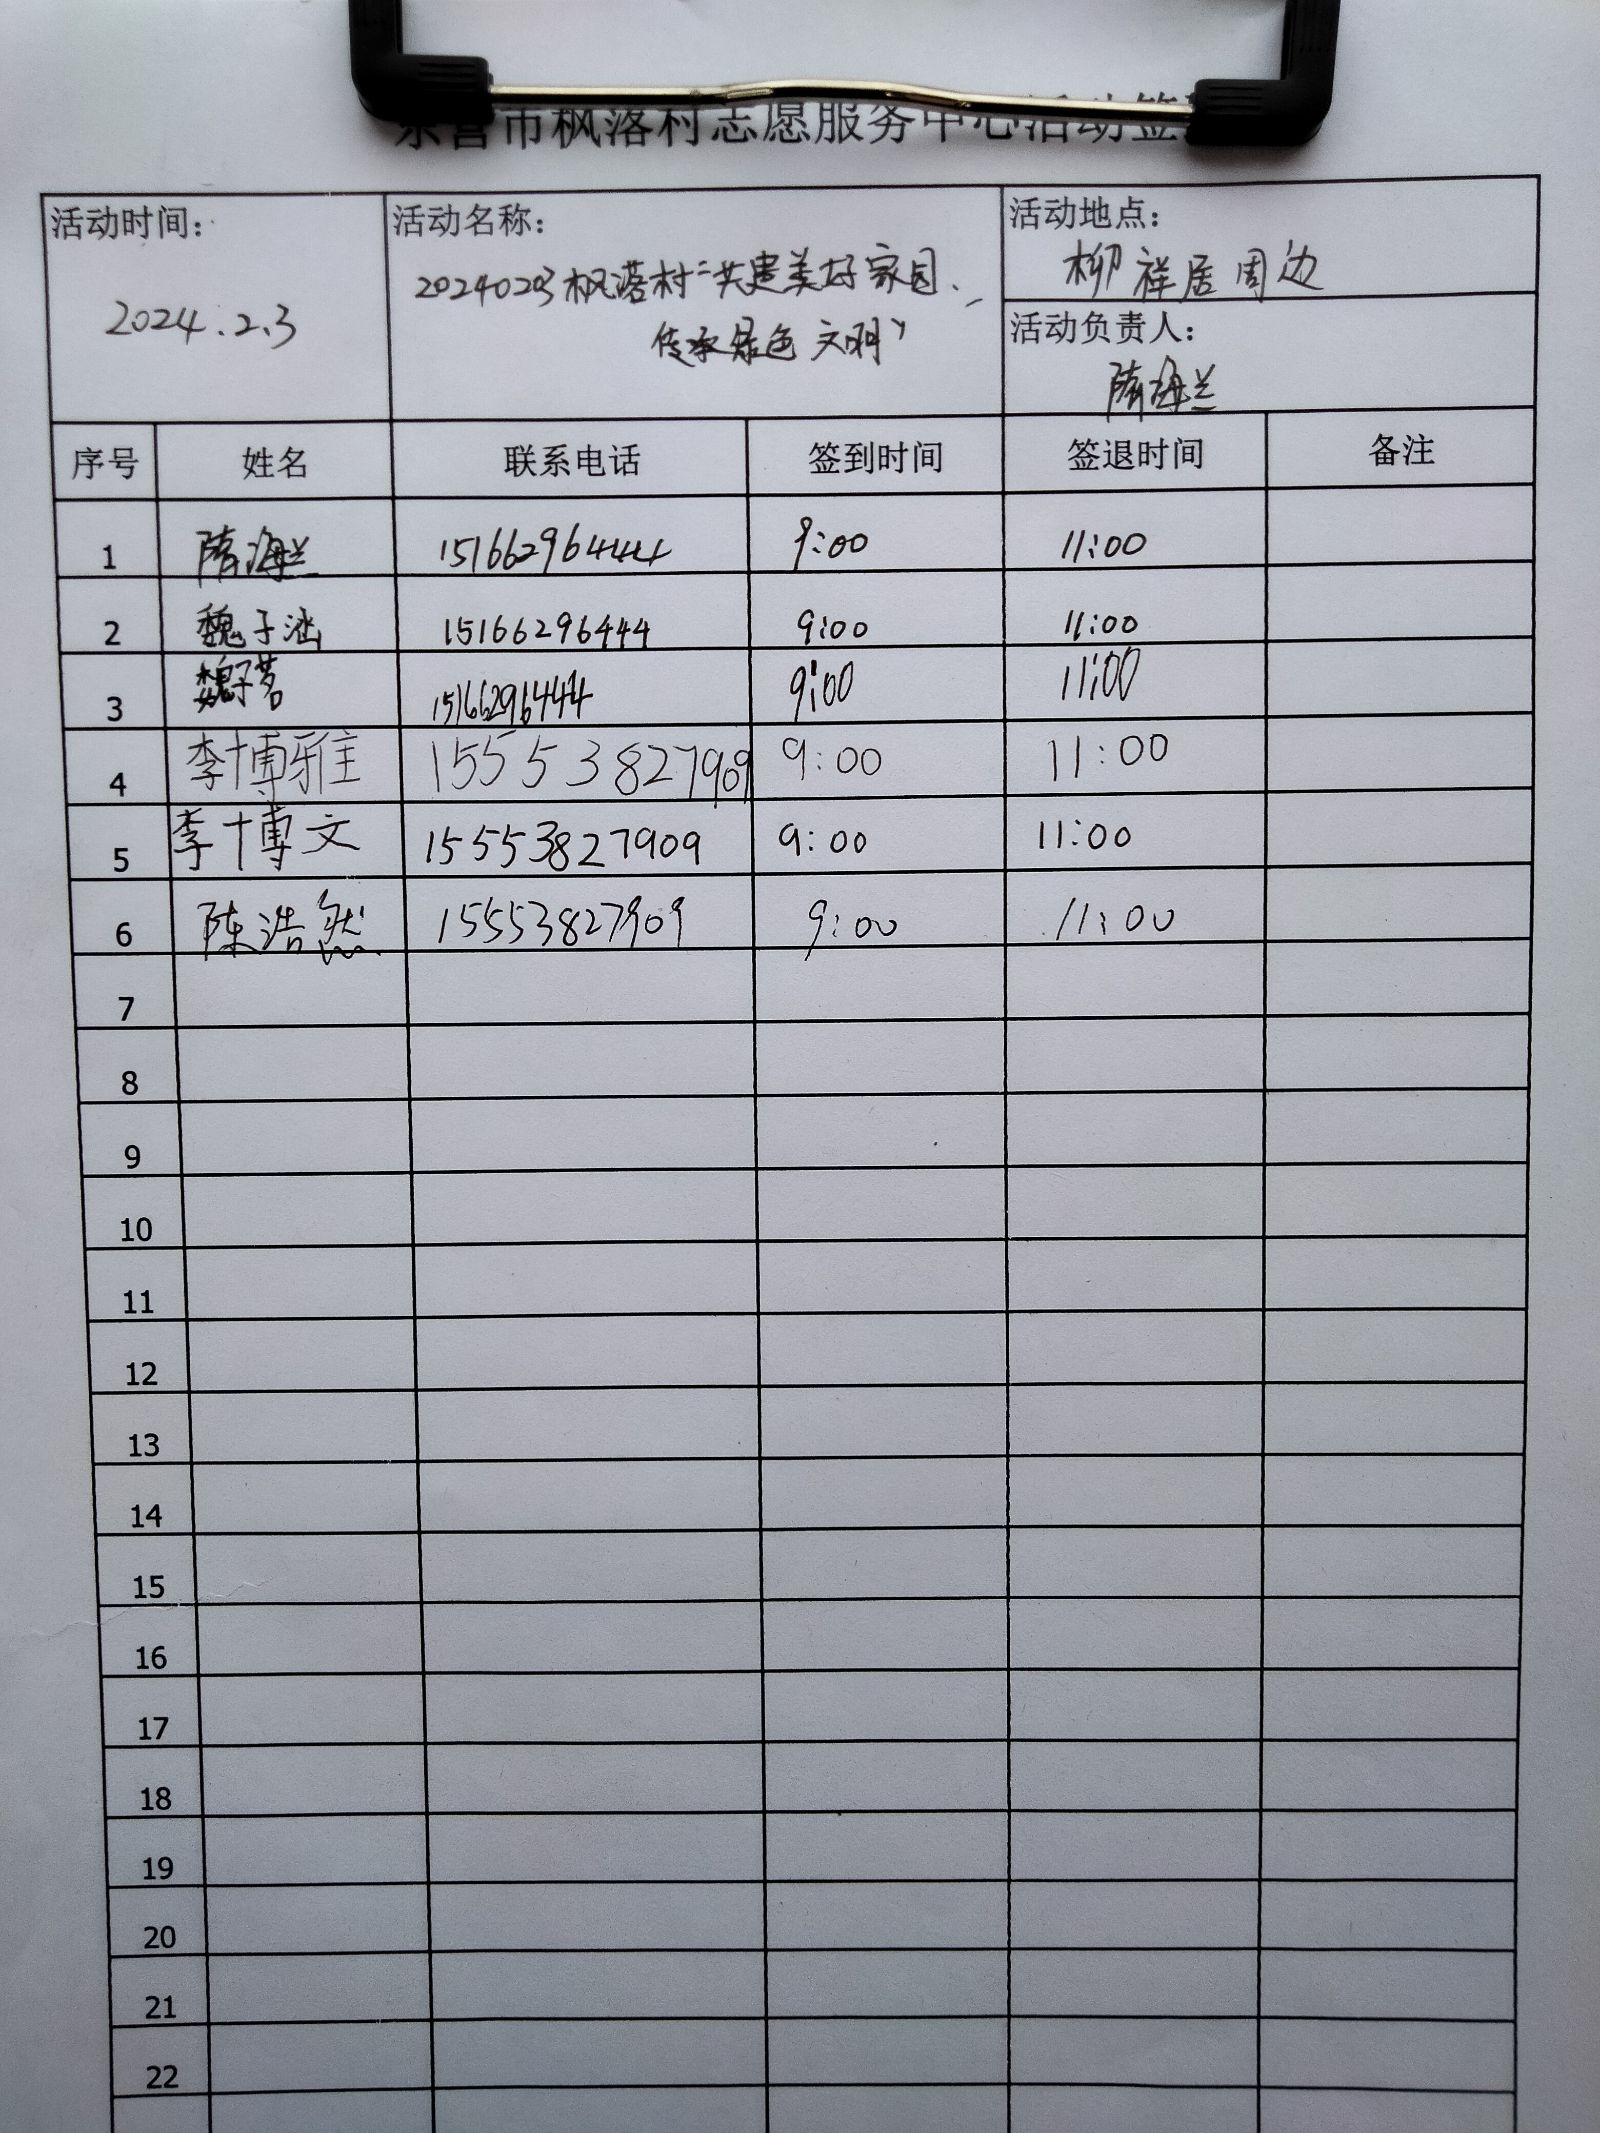 东营市枫落村志愿服务中心活动签
活动时间：
2024.2.3
活动名称：
20240203枫落村“共建美好家园、
传承绿色文明”
活动地点：
柳祥居周边
活动负责人：
隋海兰
序号 姓名 联系电话 签到时间 签退时间 备注
1 隋海兰 15166296444 9:00 11:00
2 魏子涵 15166296444 9:00 11:00
3 魏子茗 15166296444 9:00 11:00
4 李博雅 15553827909 9:00 11:00
5 李博文 15553827909 9:00 11:00
6 陈浩然 15553827909 9:00 11:00
7
8
9
10
11
12
13
14
15
16
17
18
19
20
21
22